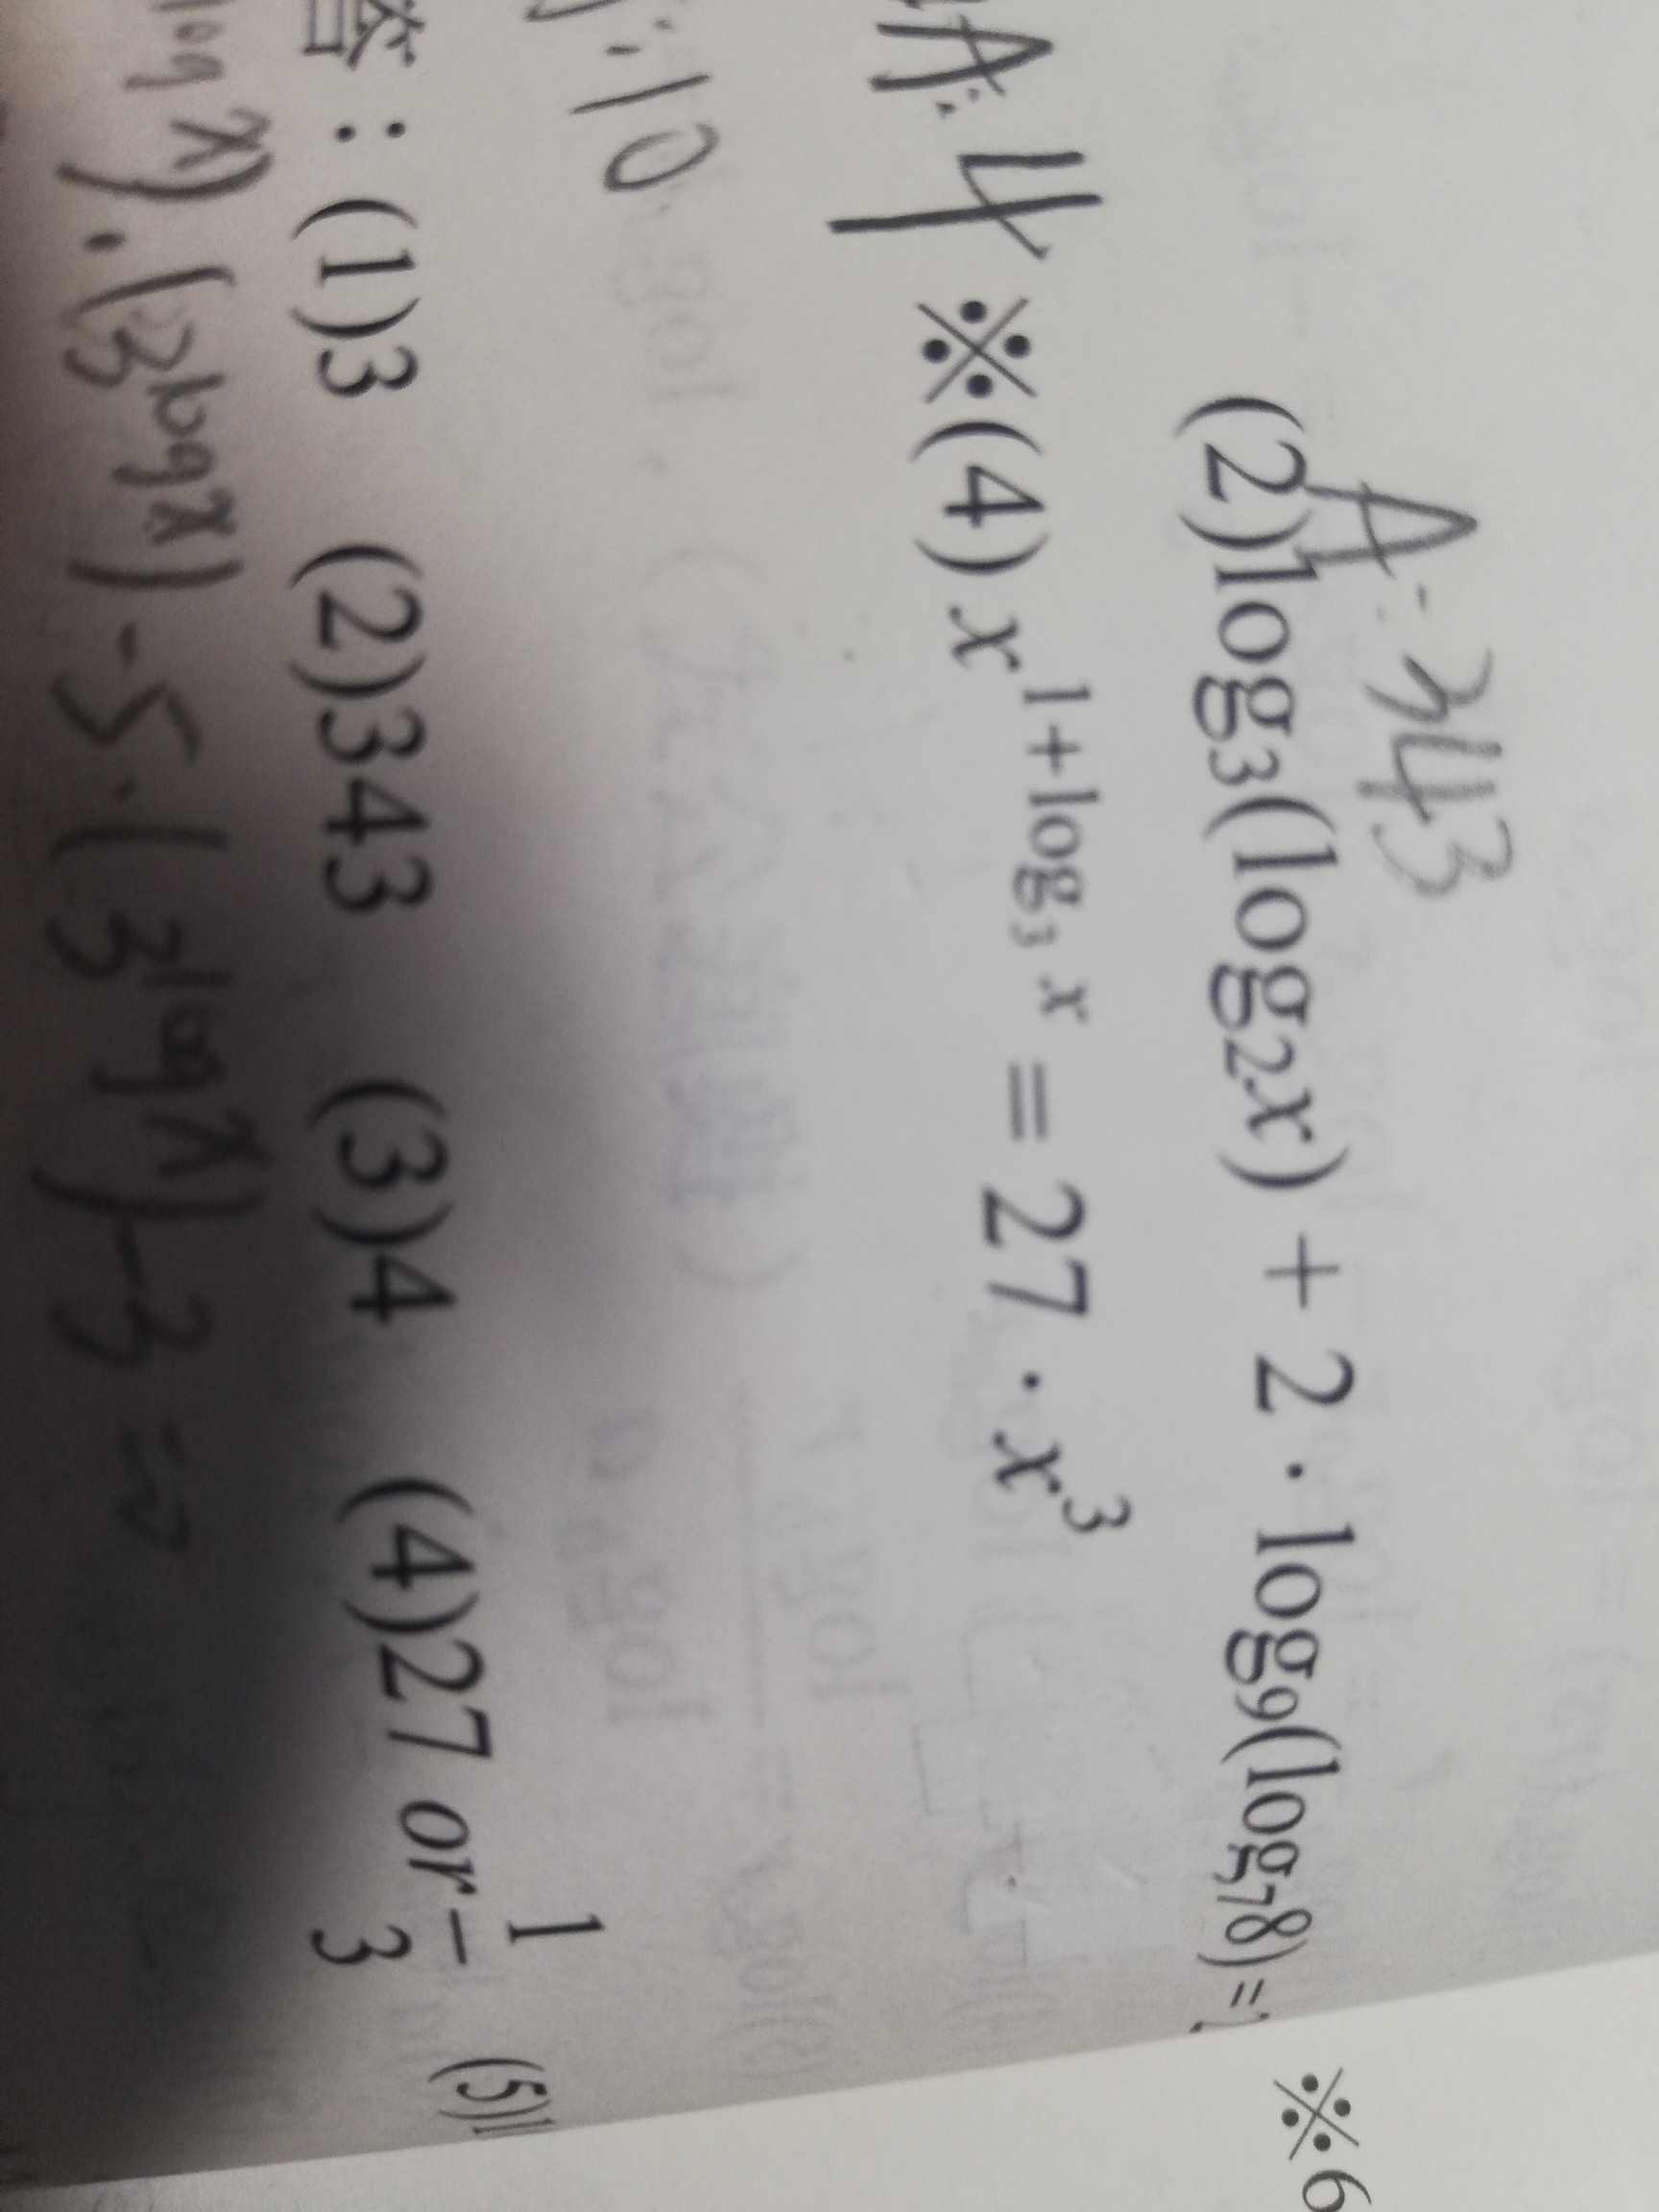 A: 343
(2)log₃(log₂x) + 2 · log₉(log₇8) = 2
※6
A: 4 ※(4) x^{1+log₃ x} = 27 · x³
: 10
答：(1)3 (2)343 (3)4 (4)27 or 1/3 (5)1
log x) · (3^{log x}) - 5 · (3^{log x}) - 3 = 0